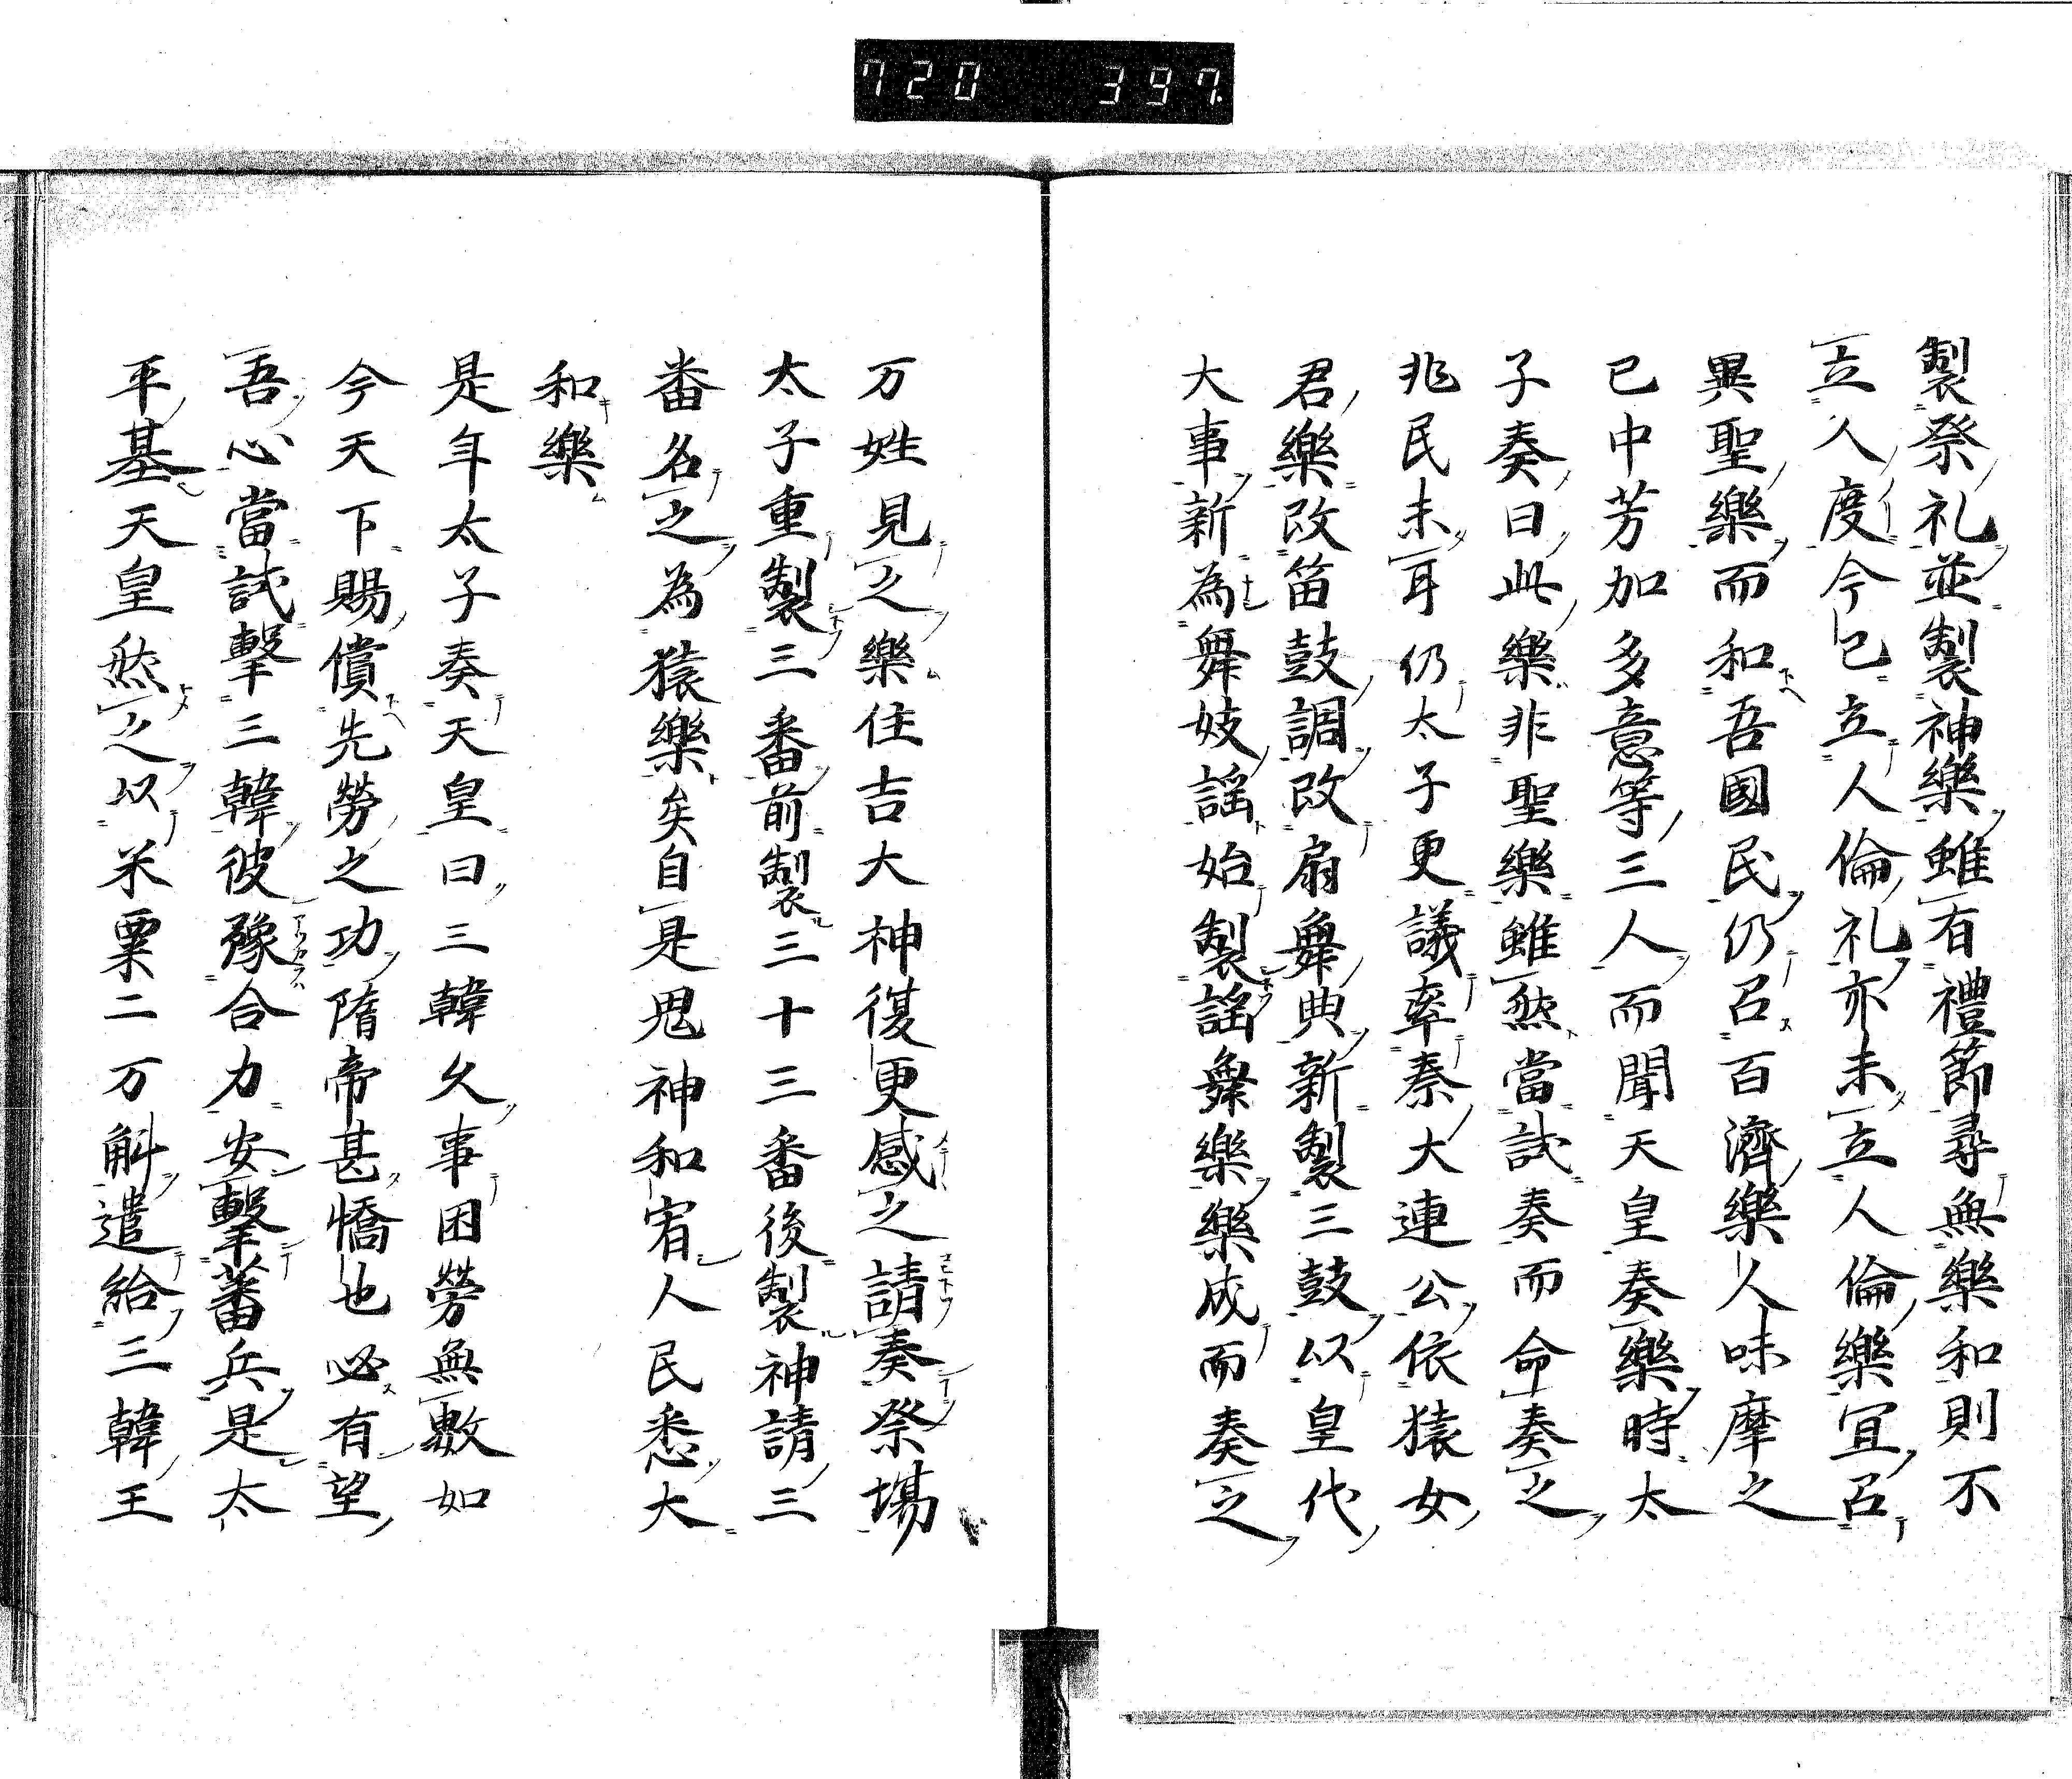 720 397
製祭礼並製神樂雖有禮節尋無樂和則不
立人度今已立人倫礼亦未立人倫樂宜召
異聖樂而和吾國民仍召百濟樂人味摩之
已中芳加多意等三人而聞天皇奏樂時太
子奏曰此樂非聖樂雖然當試奏而命奏之
兆民未耳仍太子更議率秦大連公依猿女
君樂改笛鼓調改扇舞典新製三鼓以皇代
大事新為舞妓謡始製謡舞樂樂成而奏之
万姓見之樂住吉大神復更感之請奏祭場
太子重製三番前製三十三番後製神請三
番名之為猿樂矣自是鬼神和宥人民悉大
和樂
是年太子奏天皇曰三韓久事困勞無敷如
今天下賜償先勞之功隋帝甚憍也必有望
吾心當試擊三韓彼豫合力安擊蕃兵是太
平基天皇然之以米粟二万斛遣給三韓王